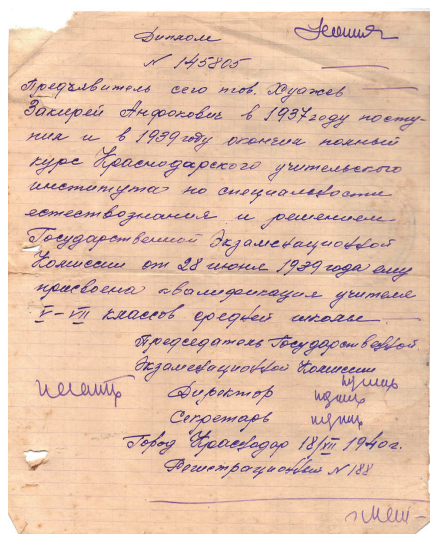 Диплом
Копия
N 145805
Предъявитель сего тов. Хуажев
Закерей Андокович в 1937 году посту-
пил и в 1939 году окончил полный
курс Краснодарского учительского
института по специальности
естествознания и решением
Государственной Экзаменационной
Комиссии от 28 июня 1939 года ему
присвоена квалификация учителя
V–VII классов средней школы.
Председатель Государственной
Экзаменационной Комиссии
подпись
печать Директор подпись
Секретарь подпись
Город Краснодар 18/VII 1940 г.
Регистрационный N 188